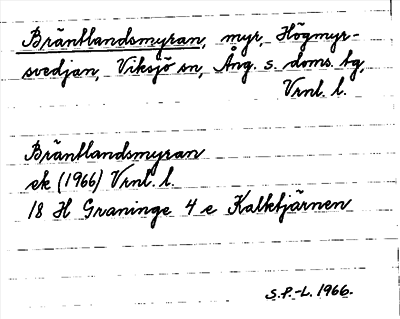 Bräntlandsmyran, myr, Högmyr-
svedjan, Viksjö sn, Ång. s. doms. tg,
Vrnl. l.
Bräntlandsmyran
ek (1966) Vrnl. l.
18 H Graninge 4 e Kalktjärnen
S.P.-L. 1966.